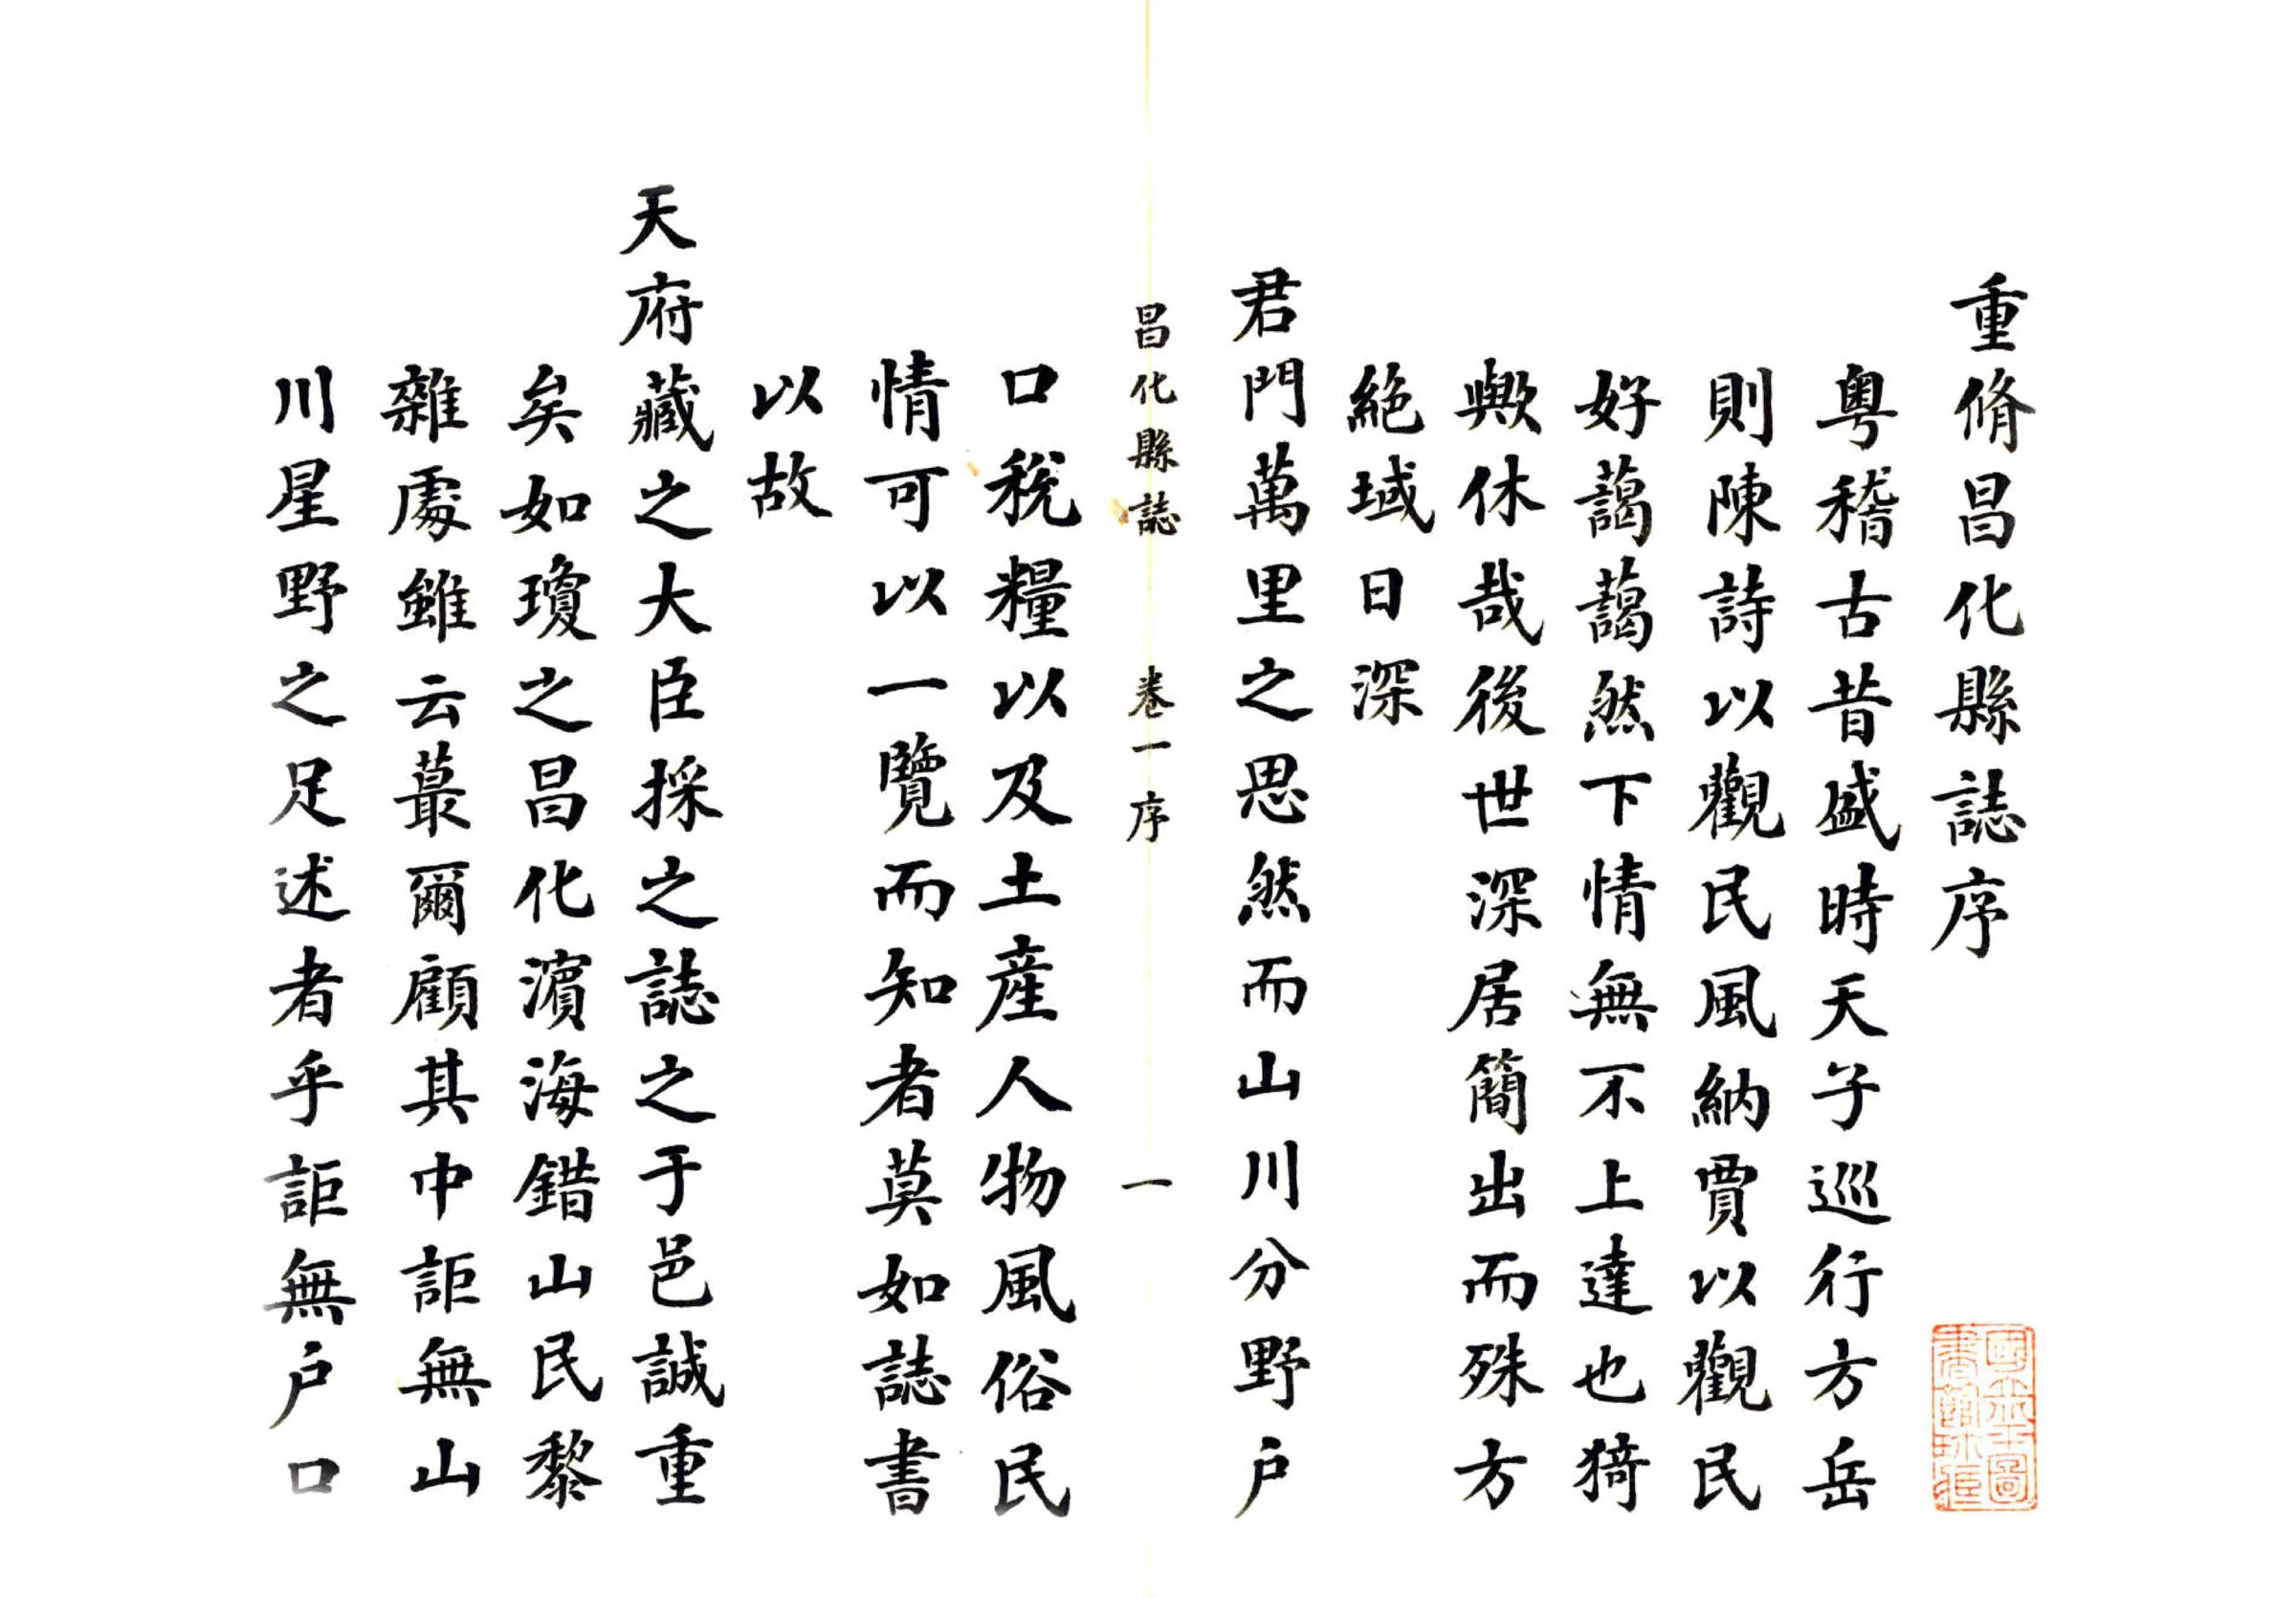 重脩昌化縣誌序
粤稽古昔盛時天子巡行方岳
則陳詩以觀民風納賈以觀民
好藹藹然下情無不上達也猗
歟休哉後世深居簡出而殊方
絕域日深
君門萬里之思然而山川分野户
昌化縣誌 卷一序 一
口稅糧以及土産人物風俗民
情可以一覽而知者莫如誌書
以故
天府藏之大臣採之誌之于邑誠重
矣如瓊之昌化濵海錯山民黎
雜處雖云蕞爾顧其中詎無山
川星野之足述者乎詎無户口
國立北平圖書館珍藏